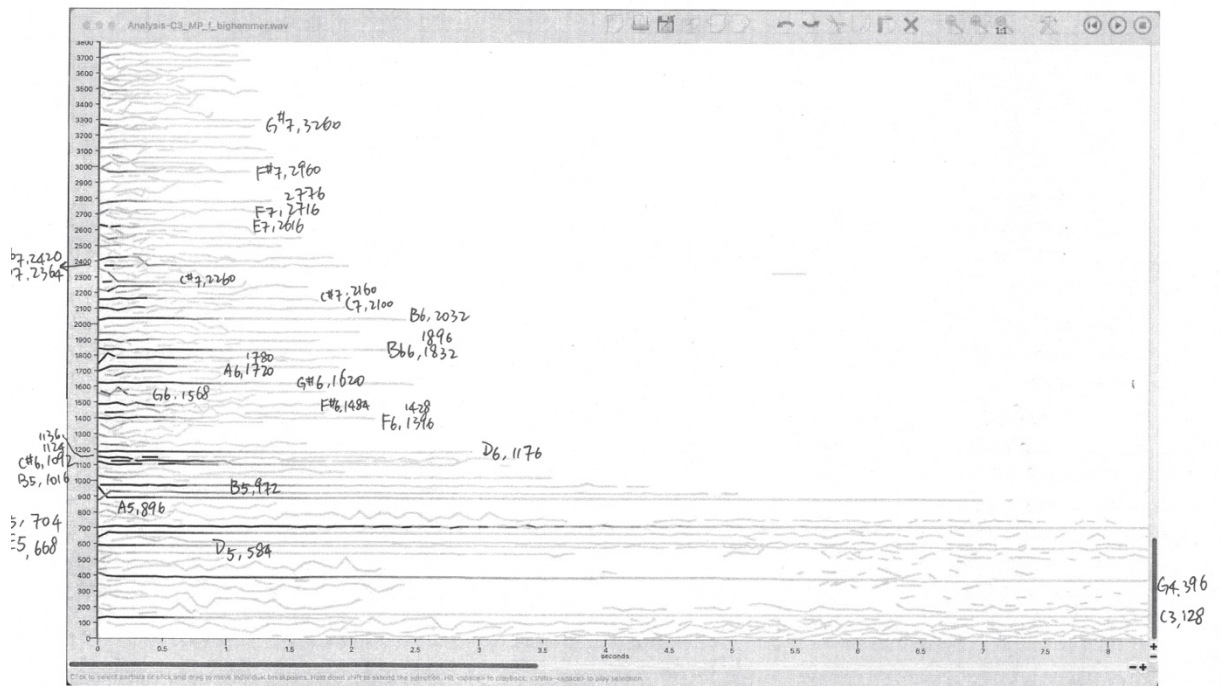 Analysis-C3_MP_f_bighammer.wav
1:1
3800
3700
3600
3500
3400
3300
3200
3100
3000
2900
2800
2700
2600
2500
2400
2300
2200
2100
2000
1900
1800
1700
1600
1500
1400
1300
1200
1100
1000
900
800
700
600
500
400
300
200
100
0
G#7,3260
F#7,2960
2776
F7,2716
E7,2616
7,2420
7,2364
C#7,2260
C#7,2160
C7,2100
B6,2032
1896
Bb6,1832
1780
A6,1720
G#6,1620
G6.1568
F#6,1484
1428
F6,1396
1136,
1124
D6,1176
C#6,1092
B5,1016
B5,972
A5,896
5,704
5,668
D5,584
G4,396
C3,128
0 0.5 1 1.5 2 2.5 3 3.5 4 4.5 5 5.5 6 6.5 7 7.5 8
seconds
Click to select partials or click and drag to move individual breakpoints. Hold down shift to extend the selection. Hit <space> to playback, <shift>-<space> to play selection.